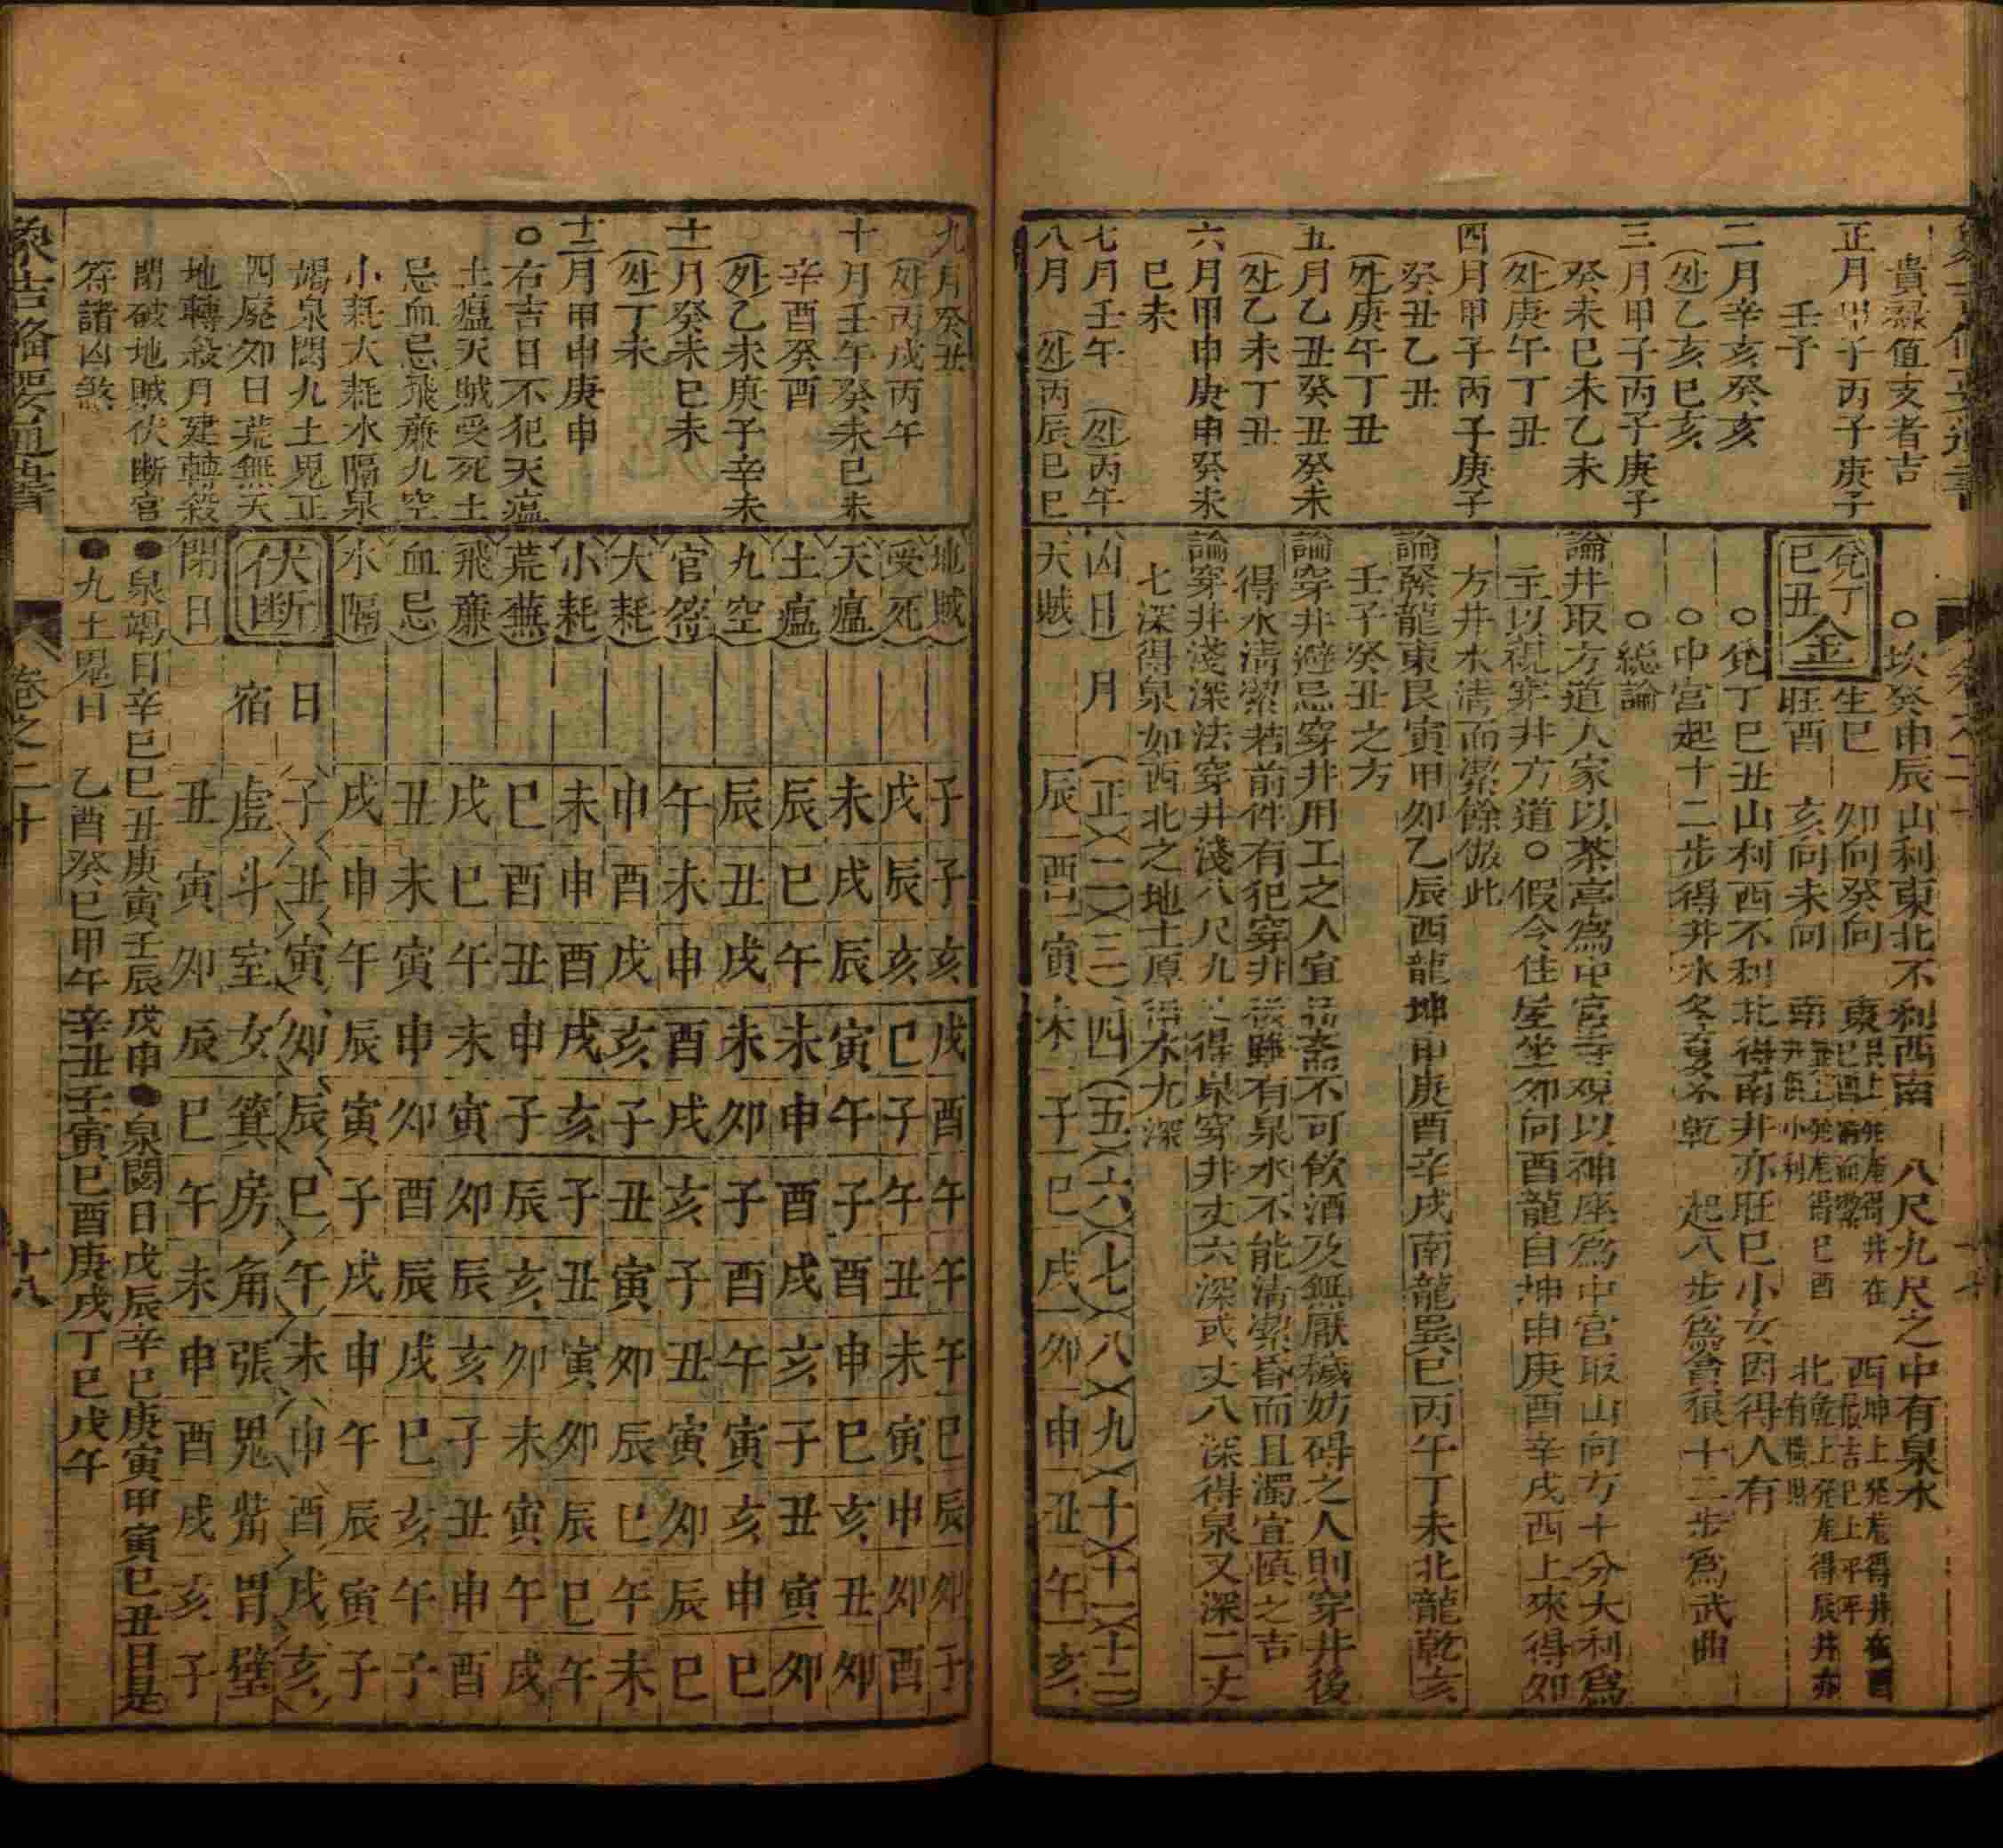 貴祿值支者吉
正月甲子丙子庚子
壬子
二月辛亥癸亥
(外)乙亥巳亥
三月甲子丙子庚子
癸未巳未乙未
(外)庚午丁丑
四月甲子丙子庚子
癸丑乙丑
(外)庚午丁丑
五月乙丑癸丑癸未
(外)乙未丁丑
六月甲申庚申癸未
巳未
七月壬午 (外)丙午
八月 (外)丙辰巳巳
○坎癸申辰山利東北不利西南 八尺九尺之中有泉水
兌丁巳丑金
生巳 卯向癸向
旺酉 亥向未向
○兌丁巳丑山利西不利北得南井亦旺巳小女因得人有
○中宮起十二步得井水冬夏不乾 起八步爲貪狼十二步爲武曲
○総論
論井取方道人家以茶亭爲中宮寺观以神座爲中宮取山向方十分大利爲
主以視穿井方道○假令住屋坐卯向酉龍自坤申庚酉辛戌西上來得卯
方井水清而潔餘倣此
論發龍東艮寅甲卯乙辰西龍坤申庚酉辛戌南龍巽巳丙午丁未北龍乾亥
壬子癸丑之方
論穿井避忌穿井用工之人宜齋不可飲酒及無厭穢妨碍之人則穿井後
得水清潔若前件有犯穿井後雖有泉水不能清潔昏而且濁宜慎之吉
論穿井淺深法穿井淺八尺九尺得泉穿井丈六深或丈八深得泉又深二丈
七深得泉如西北之地土厚水九深
凶日 月 正 二 三 四 五 六 七 八 九 十 十一 十二
天賊 辰 酉 寅 未 子 巳 戌 卯 申 丑 午 亥
九月癸丑
(外)丙戌丙午
十月壬午癸未巳未
辛酉癸酉
(外)乙未庚子辛未
十一月癸未巳未
(外)丁未
十二月甲申庚申
○右吉日不犯天瘟
土瘟天賊受死土
忌血忌飛廉九空
小耗大耗水隔泉
竭泉閉九土鬼正
四廢卯日荒無天
地轉殺月建轉殺
閉破地賊伏断官
符諸凶煞
地賊 子 子 亥 戌 酉 午 午 午 巳 辰 卯 子
受死 戌 辰 亥 巳 子 午 丑 未 寅 申 卯 酉
天瘟 未 戌 辰 寅 午 子 酉 申 巳 亥 丑 卯
土瘟 辰 巳 午 未 申 酉 戌 亥 子 丑 寅 卯
九空 辰 丑 戌 未 卯 子 酉 午 寅 亥 申 巳
官符 午 未 申 酉 戌 亥 子 丑 寅 卯 辰 巳
大耗 申 酉 戌 亥 子 丑 寅 卯 辰 巳 午 未
小耗 未 申 酉 戌 亥 子 丑 寅 卯 辰 巳 午
荒蕪 巳 酉 丑 申 子 辰 亥 卯 未 寅 午 戌
飛廉 戌 巳 午 未 寅 卯 辰 亥 子 丑 申 酉
血忌 丑 未 寅 申 卯 酉 辰 戌 巳 亥 午 子
水隔 戌 申 午 辰 寅 子 戌 申 午 辰 寅 子
伏断
日 子 丑 寅 卯 辰 巳 午 未 申 酉 戌 亥
宿 虛 斗 室 女 箕 房 角 張 鬼 觜 胃 壁
閉日 丑 寅 卯 辰 巳 午 未 申 酉 戌 亥 子
●泉竭日辛巳巳丑庚寅壬辰戊申●泉閉日戊辰辛巳庚寅甲寅巳丑日是
●九土鬼日 乙酉癸巳甲午辛丑壬寅巳酉庚戌丁巳戊午
象吉備要通書
卷之二十
十八